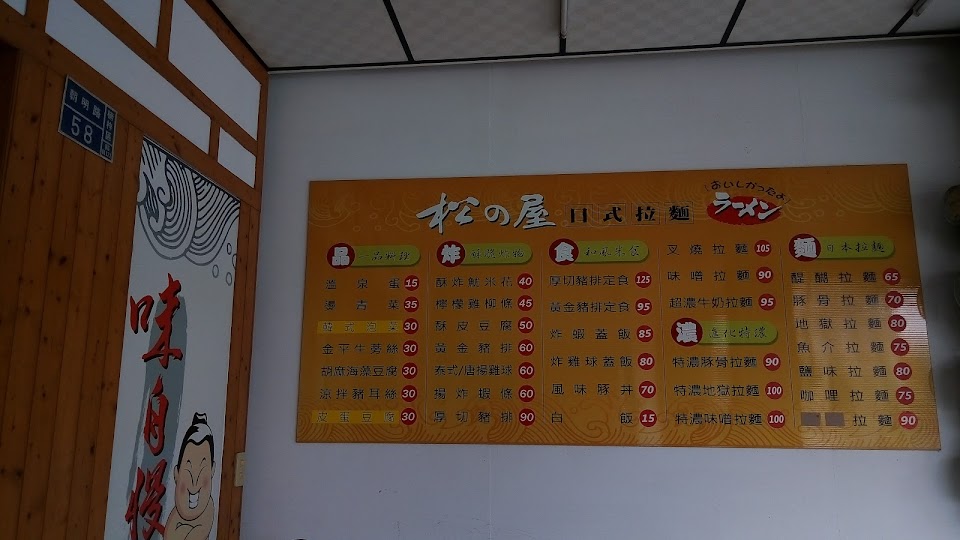 朝明路
58
味自慢
松の屋 日式拉麵
おいしかったよ
ラーメン
品 一品料理
溫泉蛋 15
燙青菜 35
韓式泡菜 30
金平牛蒡絲 30
胡麻海藻豆腐 30
涼拌豬耳絲 30
皮蛋豆腐 30
炸
酥炸魷米花 40
檸檬雞柳條 45
酥皮豆腐 50
黃金豬排 60
泰式/唐揚雞球 60
揚炸蝦條 60
厚切豬排 90
食 和風米食
厚切豬排定食 125
黃金豬排定食 95
炸蝦蓋飯 85
炸雞球蓋飯 80
風味豚丼 70
白飯 15
叉燒拉麵 105
味噌拉麵 90
超濃牛奶拉麵 95
濃 進化特濃
特濃豚骨拉麵 90
特濃地獄拉麵 100
特濃味噌拉麵 100
麵 日本拉麵
醍醐拉麵 65
豚骨拉麵 70
地獄拉麵 80
魚介拉麵 75
鹽味拉麵 80
咖哩拉麵 75
拉麵 90